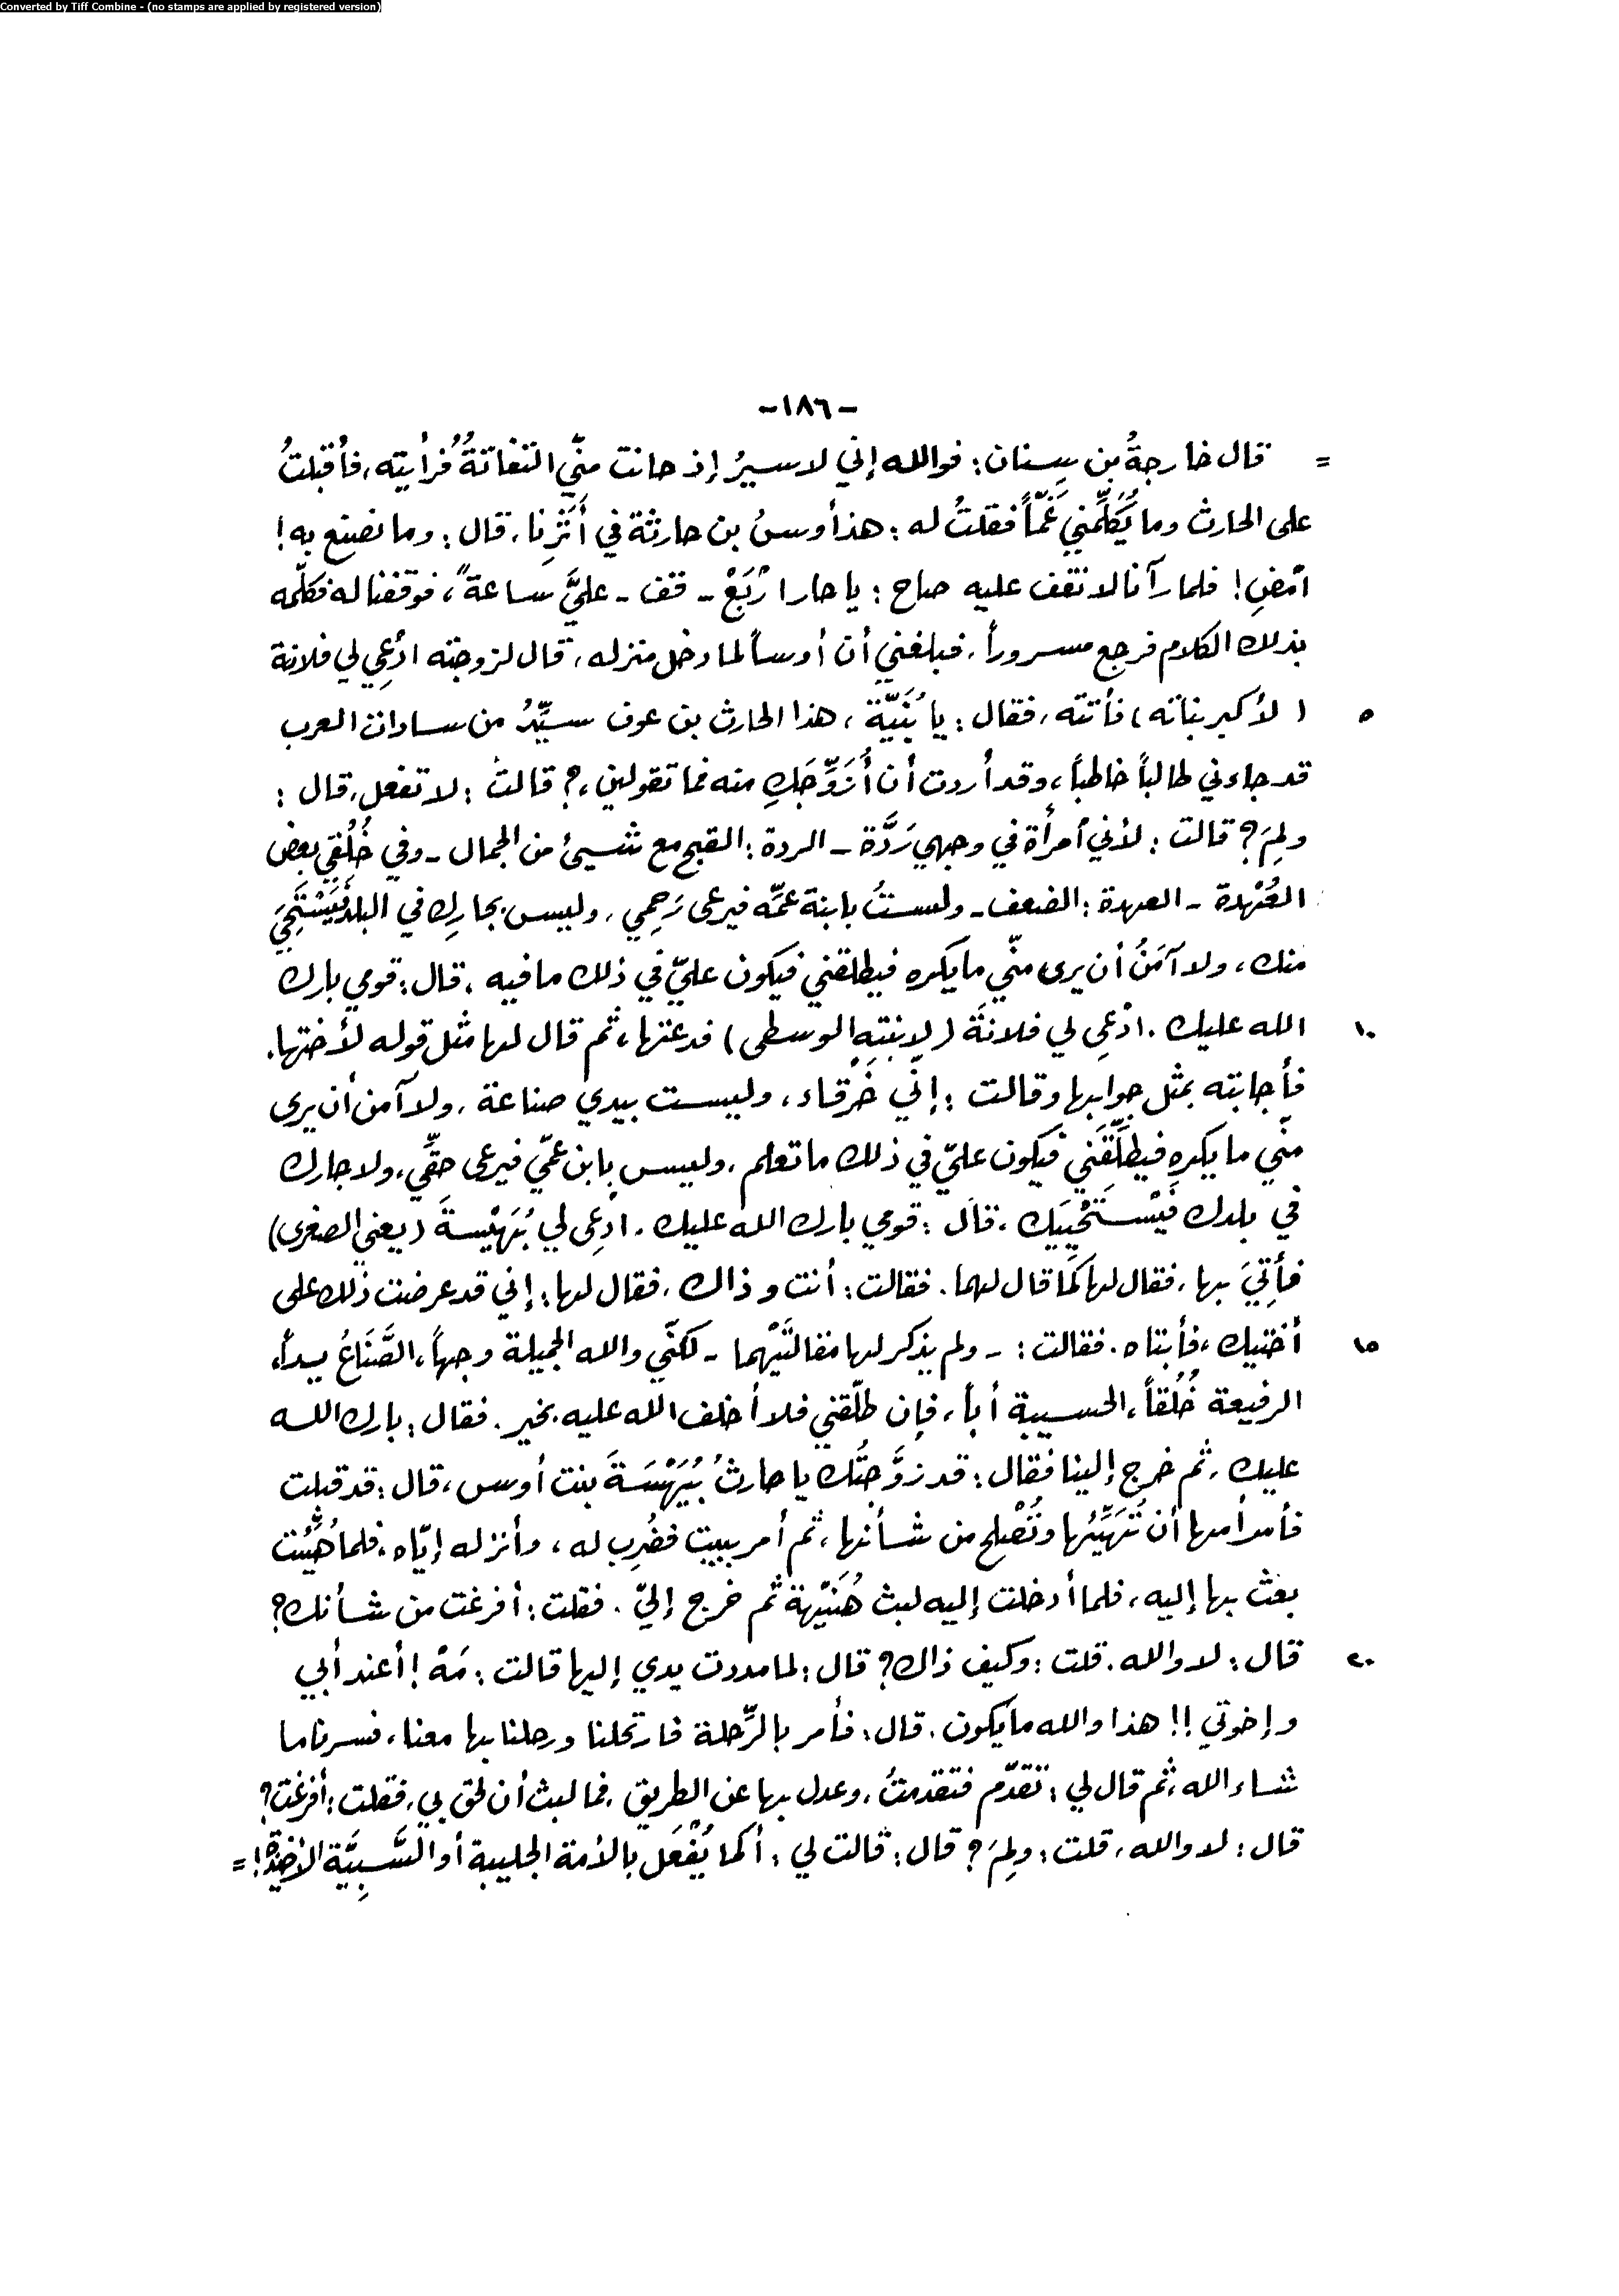 Converted by Tiff Combine - (no stamps are applied by registered version)
-١٨٦-
= قال خارجةُ بن سِنان: فوالله إني لاسيرُ إذ حانت منّي التفاتةٌ فرأيته، فأقبلتُ
على الحارث وما يُكلِّمني غَمّاً فقلتُ له: هذا أوسُ بن حارثة في أَثَرِنا، قال: وما نصنع به!
امْضِ! فلما رآنا لا نقف عليه صاح: يا حار ارْبَعْ - قف - عليَّ ساعةً، فوقفنا له فكلّمه
بذلك الكلام فرجع مسروراً، فبلغني أن أوساً لما دخل منزله، قال لزوجته ادْعِي لي فلانة
٥ (لأكبر بناته) فأتته، فقال: يا بُنَيّة، هذا الحارث بن عوف سيِّدُ من سادات العرب
قد جاءني طالباً خاطباً، وقد أردت أن أُزَوِّجَكِ منه فما تقولين،؟ قالت: لا تفعل، قال:
ولِمَ؟ قالت: لأني أمرأة في وجهي رَدَّة - الردة: القبح مع شيئ من الجمال - وفي خُلُقي بعض
العُهْدة - العهدة: الضعف - ولستُ بابنة عمّه فيرعى رَحِمي، وليس بجارِك في البلد فَيَسْتَحِيَ
منك، ولا آمَنُ أن يرى منّي ما يكره فيطلقني فيكون عليّ في ذلك ما فيه، قال: قومي بارك
١٠ الله عليك. ادْعِي لي فلانةَ (لابنتِهِ الوسطى) فدعتها، ثم قال لها مثل قوله لأختها.
فأجابته بمثل جوابها وقالت: إنّي خَرقاء، وليست بيدي صناعة، ولا آمن أن يرى
منّي ما يكره فيطلِّقَني فيكون عليّ في ذلك ما تعلم، وليس بابن عمّي فيرعى حقِّي، ولا جارك
في بلدك فَيَسْتَحْيِيَك، قال: قومي بارك الله عليك. ادعِى لي بُهَيْسةَ (يعني الصغرى)
فأُتِيَ بها، فقال لها كما قال لهما. فقالت: أنت وذاك، فقال لها: إني قد عرضت ذلك على
١٥ أختيك، فأبتاه. فقالت: - ولم يذكر لها مقالتَيْهما - لكنّي والله الجميلة وجهاً، الصَّنَاعُ يداً،
الرفيعة خُلُقاً، الحسيبة أباً، فإن طلّقني فلا أخلف الله عليه بخير. فقال: بارك الله
عليك، ثم خرج إلينا فقال: قد زوَّجتُك يا حارثُ بُهَيْسَةَ بنت أوس، قال: قد قبلت
فأمر أمها أن تُهَيِّئها وتُصْلح من شأنها، ثم أمر ببيت فضُرِب له، وأنزله إيّاه، فلما هُيِّئت
بعث بها إليه، فلما أدخلت إليه لبث هُنَيْهة ثم خرج إليّ. فقلت: أفرغت من شأنك؟
٢٠ قال: لا والله. قلت: وكيف ذاك؟ قال: لما مددت يدي إليها قالت: مَهْ! أعند أبي
وإخوتي!! هذا والله ما يكون. قال: فأمر بالرِّحلة فارتحلنا ورحلنا بها معنا، فسرنا ما
شاء الله، ثم قال لي: تقدّم فتقدمتُ، وعدل بها عن الطريق، فما لبث أن لحق بي، فقلت: أفرغت؟
قال: لا والله، قلت: ولِمَ؟ قال: قالت لي: أكما يُفْعَل بالأمة الجليبة أو السَّبِيَّة الأخيذة! =